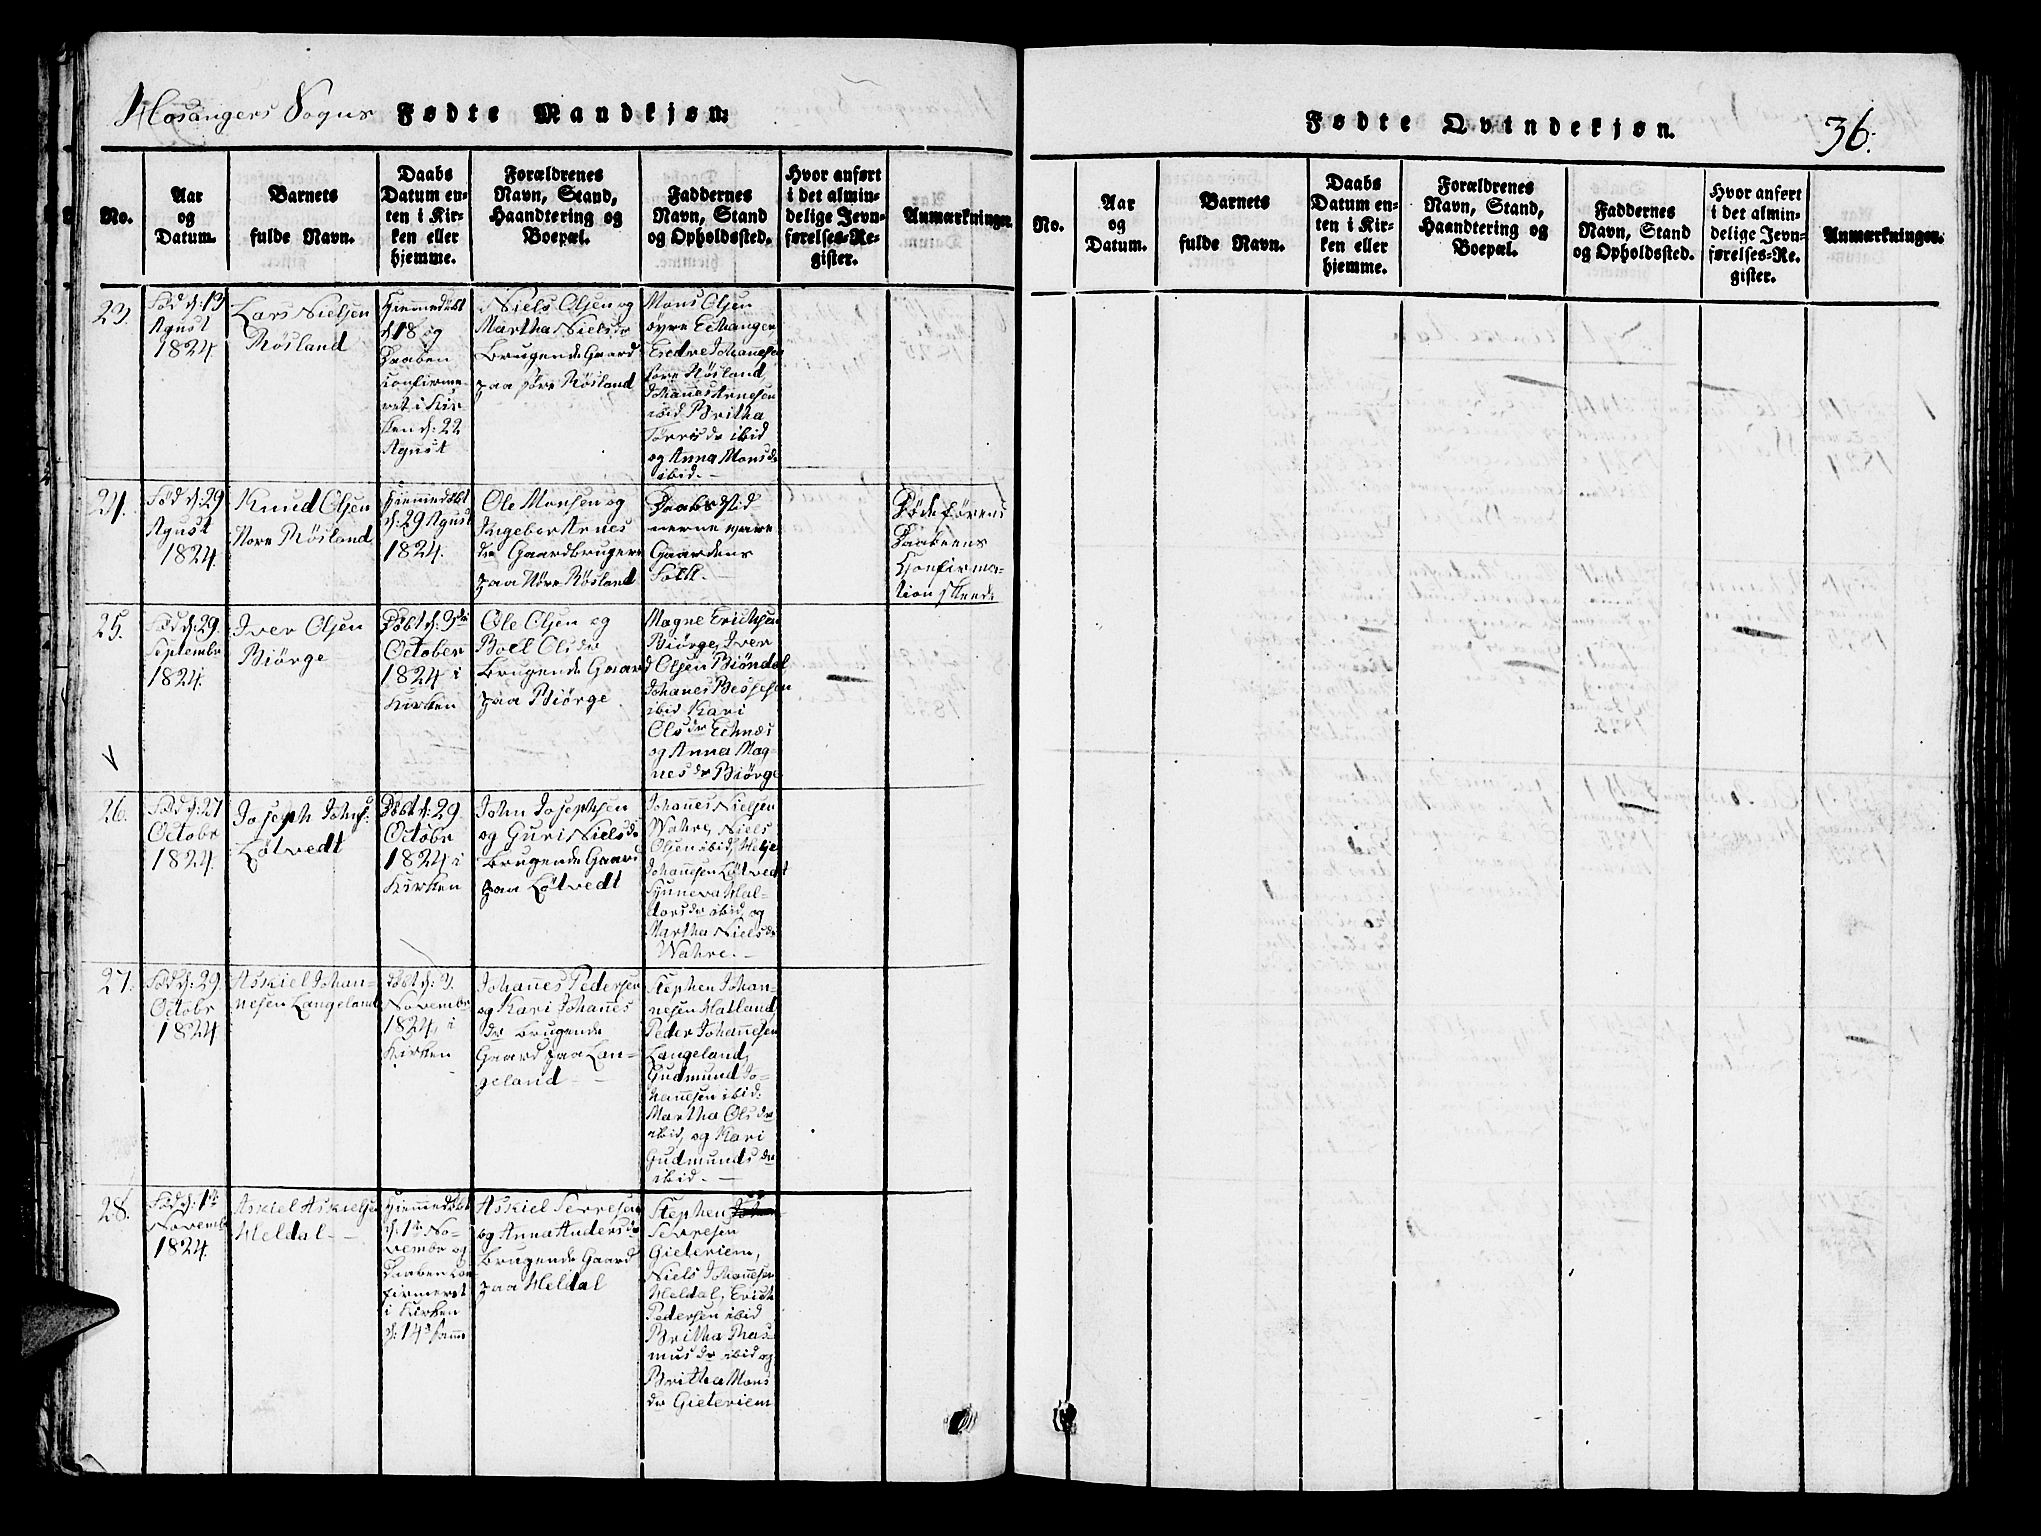 Hosangers Sogns Fødte Mandkjøn.
No.
Aar
og
Datum.
Barnets
fulde Navn.
Daabs
Datum en-
ten i Kir-
ken eller
hjemme.
Forældrenes
Navn, Stand,
Haandtering og
Boepæl.
Faddernes
Navn, Stand
og Opholdssted.
Hvor anført
i det almin-
delige Jevn-
førelses-Re-
gister.
Anmærkninger.
23.
Fød d: 13
Agust
1824.
Lars Nielsen
Røsland
Hiemmedøbt
d: 18 og
Daaben
Confirme-
ret i Kir-
ken d: 22
Agust
Niels Olsen og
Martha Nielsdr
Brugende Gaard
paa søre Røsland
Mons Olsen
øyre Echanger
Endre Johannesen
søre Røsland
Johanes Arnesen
ibid Britha
Torrisdr ibid
og Anna Monsdr
ibid.
24.
Fød d: 29
Agust
1824.
Knud Olsen
Nore Røsland
Hiemmedøbt
d: 29 Agust
1824.
Ole Monsen og
Ingebor Arnes
dr Gaardbrugere
paa Nore Røsland
Daabs Vid-
nerne vare
Gaardens
Folk.
Døde førens
Daabens
Confirma-
tion skeede
25.
Fød d: 29.
Septembr
1824.
Iver Olsen
Biørge
Døbt d: 3de
October
1824 i
Kirken
Ole Olsen og
Boel Olsdr
Brugende Gaard
paa Biørge
Magne Erichsen
Biørge, Iver
Olsen Biøndal
Johanes Bessesen
ibid Kari
Olsdr Echnæs
og Anna Mag-
nesdr Biørge
26.
Fød d: 27
Octobr
1824.
Joseph Johns:
Løtvedt
Døbt d: 29
Octobr
1824 i
Kirken
John Josephsen
og Guri Nielsdr
Brugende Gaard
paa Løtvedt
Johannes Nielsen
Wahre, Niels
Olsen ibid, Helje
Johannesen Løtvedt
Synneva Hal-
dorsdr ibid, og
Martha Nielsdr
Wahre.
27.
Fød d: 29.
Octobr
1824
Askiel Johan-
nesen Langeland
Døbt d: 3.
Novembr
1824, i
Kirken
Johannes Pedersen
og Kari Johanes
dr Brugende
Gaard paa Lan-
geland
Stephen Johan-
nesen Hatland
Peder Johannesen
Langeland,
Gudmund Jo-
hannesen ibid.
Martha Olsdr
ibid, og Kari
Gudmundsdr
ibid.
28.
Fød d: 1te
Novembr
1824.
Askiel Askielsen
Heldal
Hiemmedøbt
d: 1te No-
vembr og
Daaben Con
firmeret
i Kirken
d: 14de samme
Askiel Sevresen
og Anna Andersdr
Brugende Gaard
paa Heldal
Stephen
Sevresen
Gieteriem,
Niels Johannesen
Heldal, Erich
Pedersen ibid
Britha Ras-
musdr ibid og
Britha Mons
dr Gieteriem
Fødte Qvindekjøn.
36.
No.
Aar
og
Datum.
Barnets
fulde Navn.
Daabs
Datum en-
ten i Kir-
ken eller
hjemme.
Forældrenes
Navn, Stand,
Haandtering og
Boepæl.
Faddernes
Navn, Stand
og Opholdssted.
Hvor anført
i det almin-
delige Jevn-
førelses-Re-
gister.
Anmærkninger.